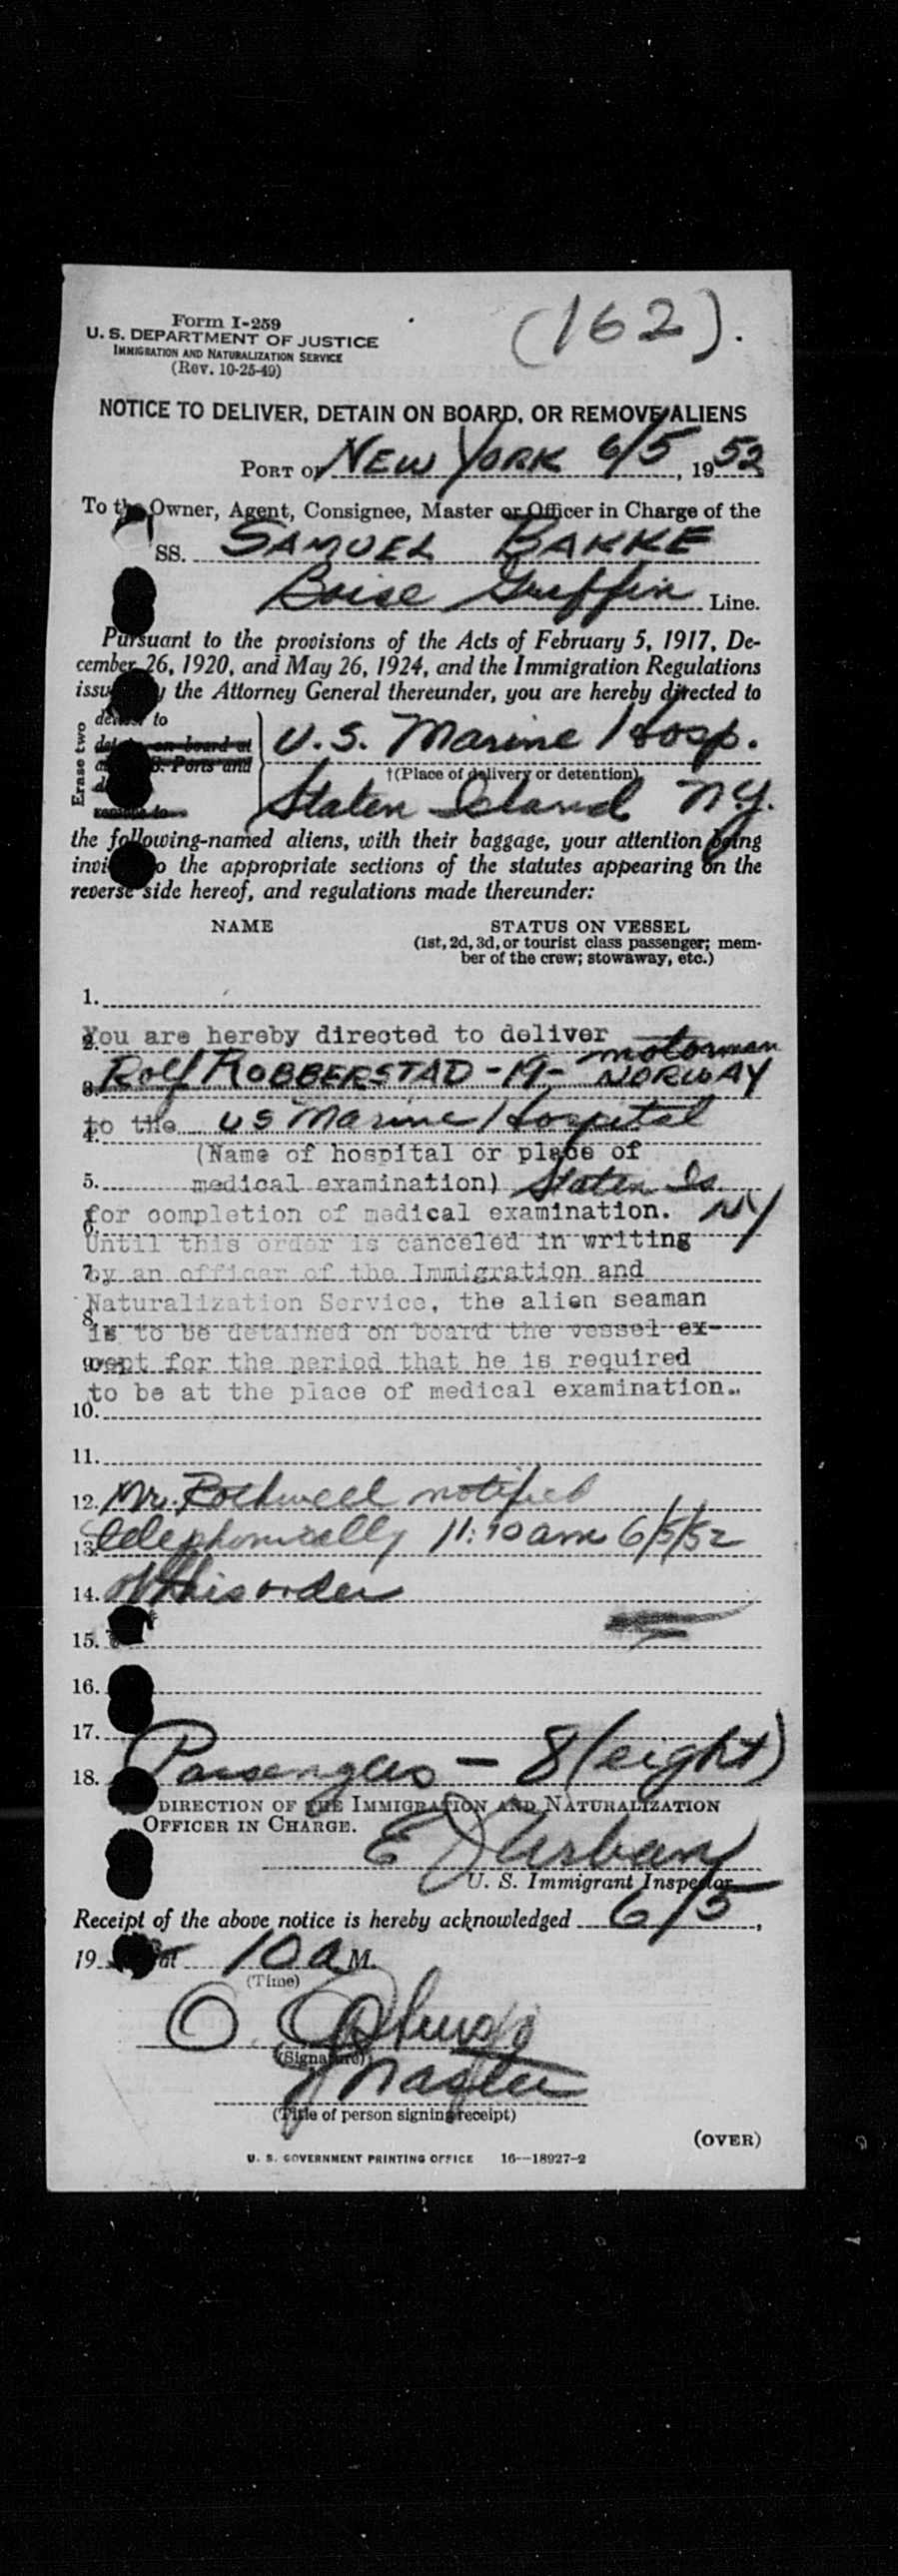 Form I-259
U. S. DEPARTMENT OF JUSTICE
IMMIGRATION AND NATURALIZATION SERVICE
(Rev. 10-25-49)
(162).
NOTICE TO DELIVER, DETAIN ON BOARD, OR REMOVE ALIENS
PORT OF NEW YORK 6/5, 1952
To the Owner, Agent, Consignee, Master or Officer in Charge of the
SS. SAMUEL BAKKE
Boise Griffin Line.
Pursuant to the provisions of the Acts of February 5, 1917, De-
cember 26, 1920, and May 26, 1924, and the Immigration Regulations
issu y the Attorney General thereunder, you are hereby directed to
Erase two
to
on board at
U.S. Marine Hosp.
Ports and
†(Place of delivery or detention)
Staten Island N.Y.
the following-named aliens, with their baggage, your attention being
invi o the appropriate sections of the statutes appearing on the
reverse side hereof, and regulations made thereunder:
NAME STATUS ON VESSEL
(1st, 2d, 3d, or tourist class passenger; mem-
ber of the crew; stowaway, etc.)
1.
You are hereby directed to deliver
2. motorman
3. Rolf ROBBERSTAD -19- NORWAY
to the US Marine Hospital
4.
(Name of hospital or place of
5. medical examination) Staten Is
for completion of medical examination. NY
6.
Until this order is canceled in writing
7. by an officer of the Immigration and
Naturalization Service, the alien seaman
8.
is to be detained on board the vessel ex-
9. cept for the period that he is required
to be at the place of medical examination..
10.
11.
12. Mr. Rothwell notified
13. telephonically 11:10 am 6/5/52
14. of this order
15.
16.
17.
18. Passengers - 8 (eight)
DIRECTION OF THE IMMIGRATION AND NATURALIZATION
OFFICER IN CHARGE.
E J Urban
U. S. Immigrant Inspector
Receipt of the above notice is hereby acknowledged 6/5,
19 at 10 a M.
(Time)
O.
(Signature)
Master
(Title of person signing receipt)
(OVER)
U. S. GOVERNMENT PRINTING OFFICE 16—18927-2